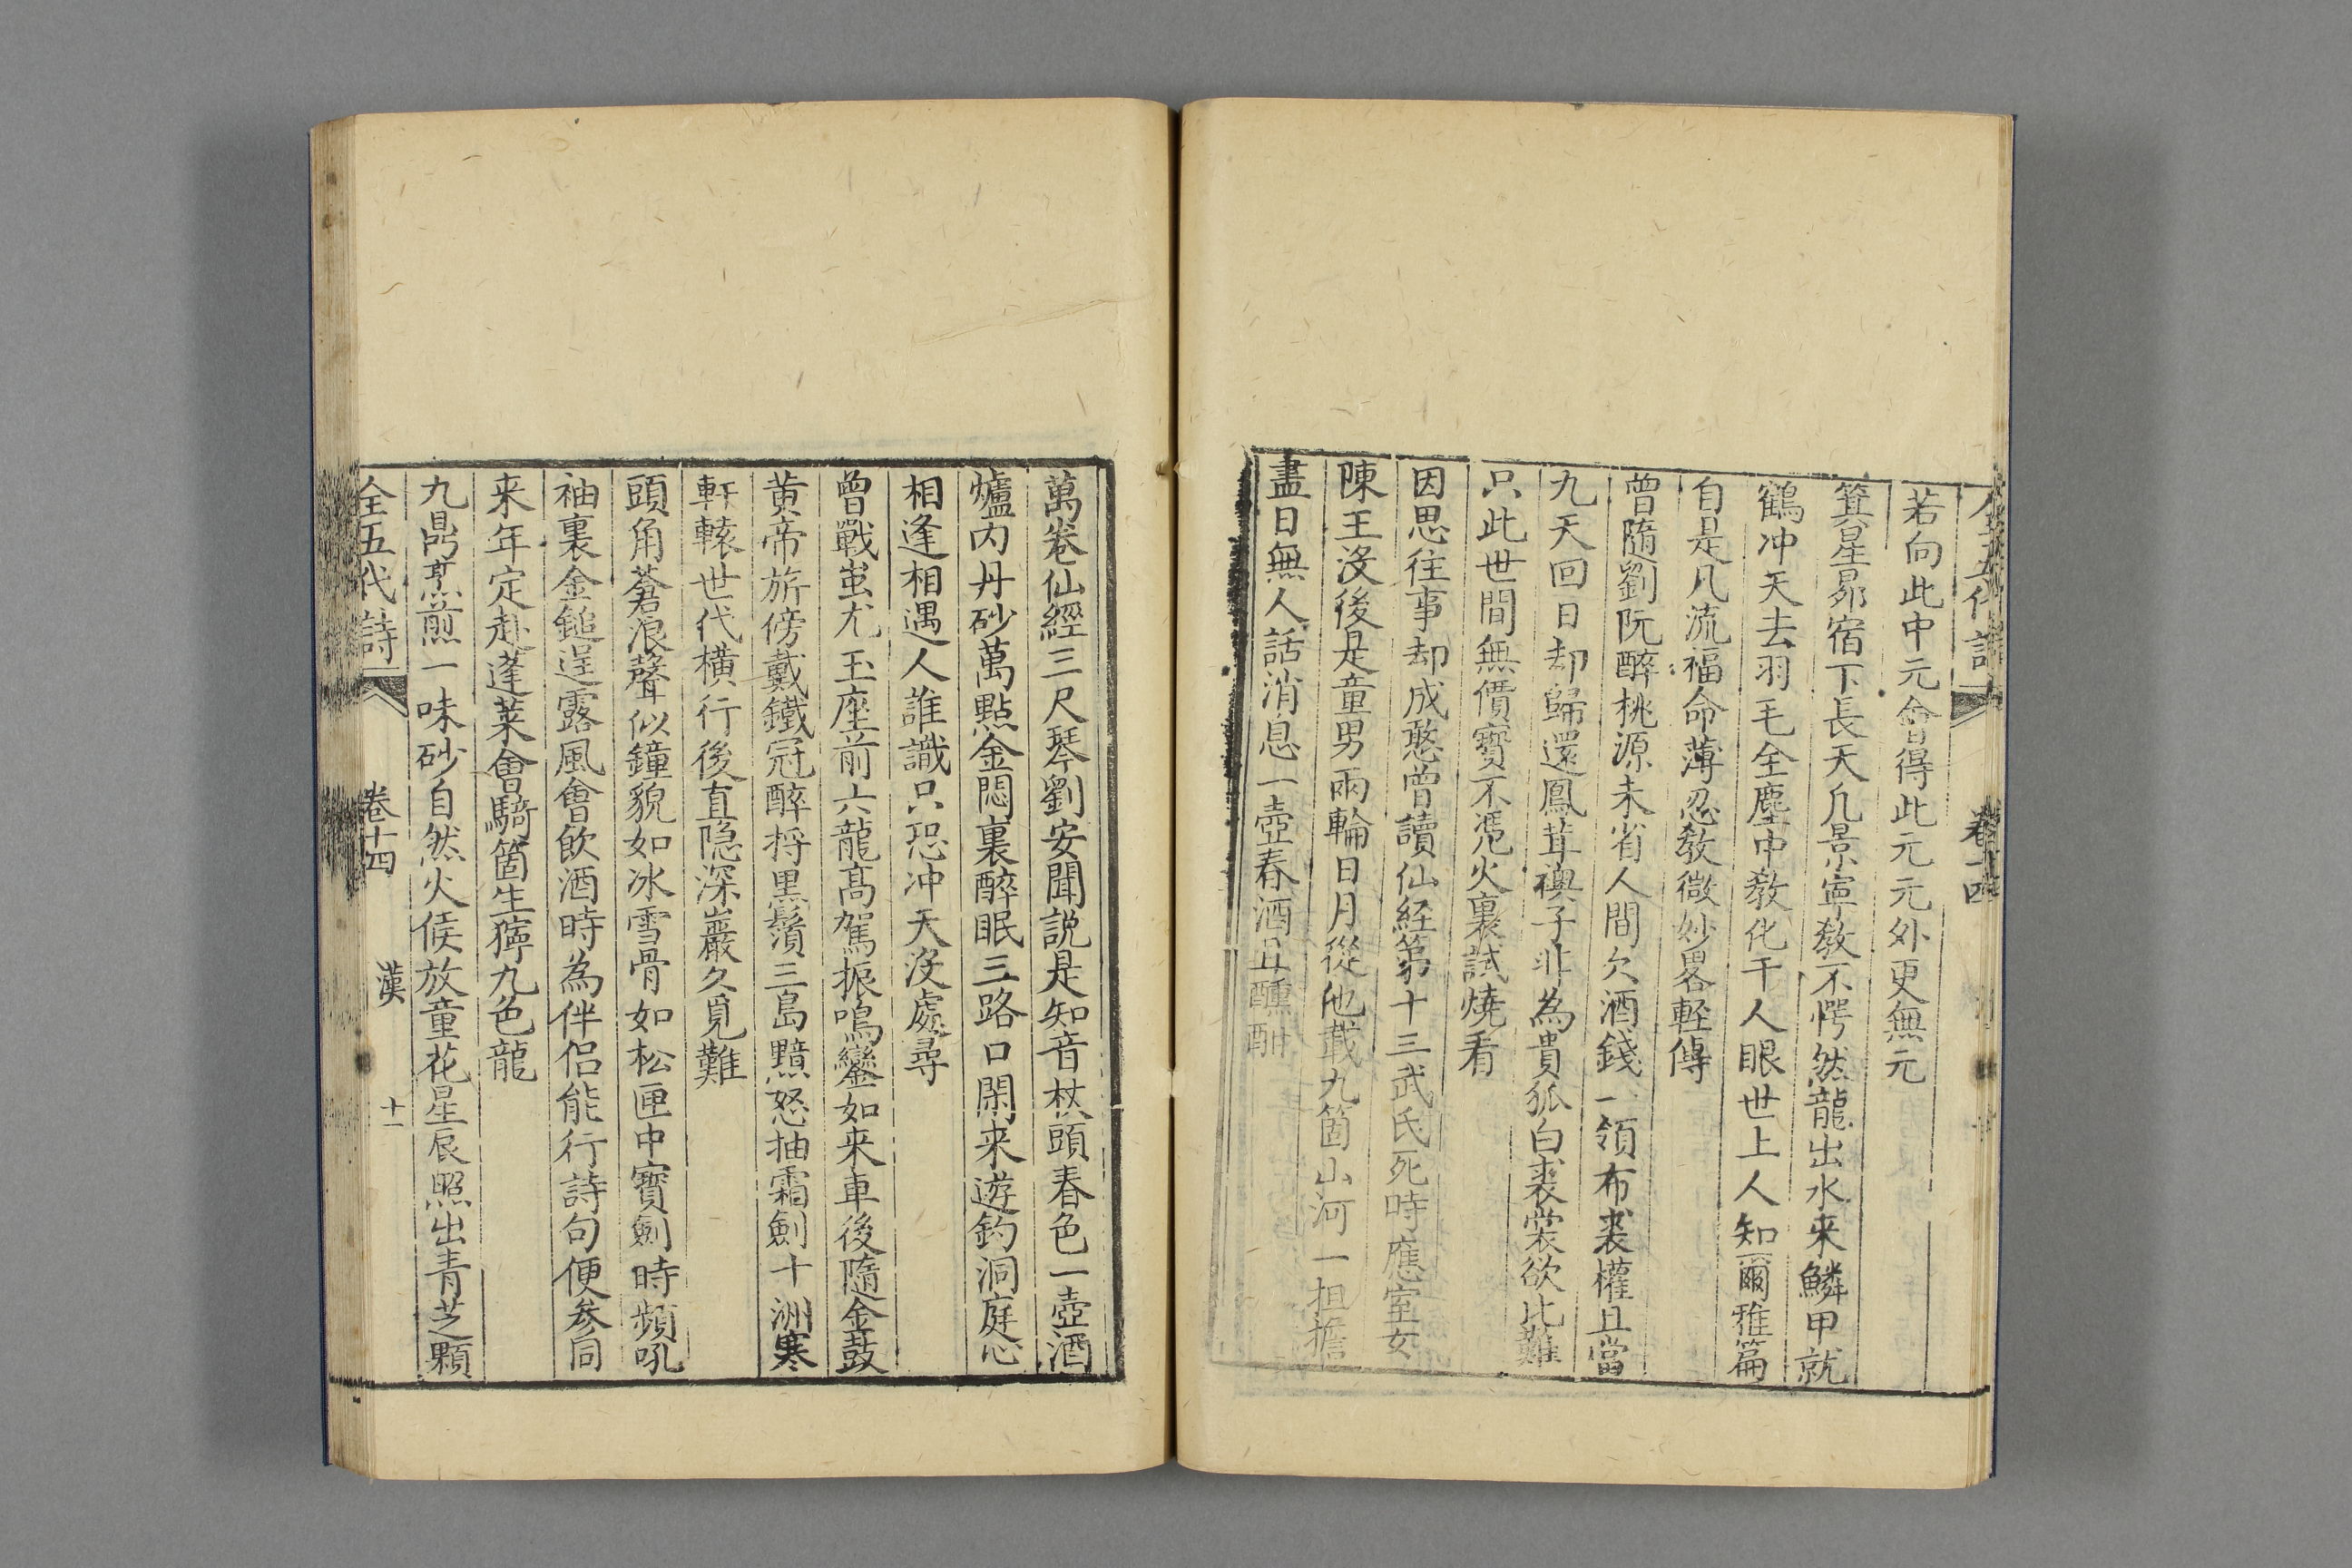 全五代詩 卷十四
若向此中元會得此元元外更無元
箕星昴宿下長天凡景寧教不愕然龍出水来鱗甲就
鶴冲天去羽毛全塵中教化千人眼世上人知爾雅篇
自是凡流福命薄忍教微妙畧輕傳
曾隨劉阮醉桃源未省人間欠酒錢一領布裘權且當
九天回日却歸還鳳茸襖子非為貴狐白裘裳欲比難
只此世間無價寶不慿火裏試燒看
因思往事却成憨曾讀仙経第十三武氏死時應室女
陳王沒後是童男兩輪日月從他載九箇山河一担擔
盡日無人話消息一壺春酒且醺酣
萬卷仙經三尺琴劉安聞説是知音杖頭春色一壺酒
爐内丹砂萬點金悶裏醉眠三路口閑来遊釣洞庭心
相逢相遇人誰識只恐冲天沒處尋
曾戰蚩尤玉座前六龍髙駕振鳴鑾如来車後隨金鼓
黄帝旂傍戴鐵冠醉捋黒鬚三島黯怒抽霜劍十洲寒
軒轅世代橫行後直隐深巖久覓難
頭角蒼浪聲似鐘貌如冰雪骨如松匣中寳劍時頻吼
袖裏金鎚逞露風會飲酒時為伴侣能行詩句便参同
来年定赴蓬莱會騎箇生獰九色龍
九鼎烹煎一味砂自然火候放童花星辰照出青芝顆
全五代詩 卷十四 漢 十一